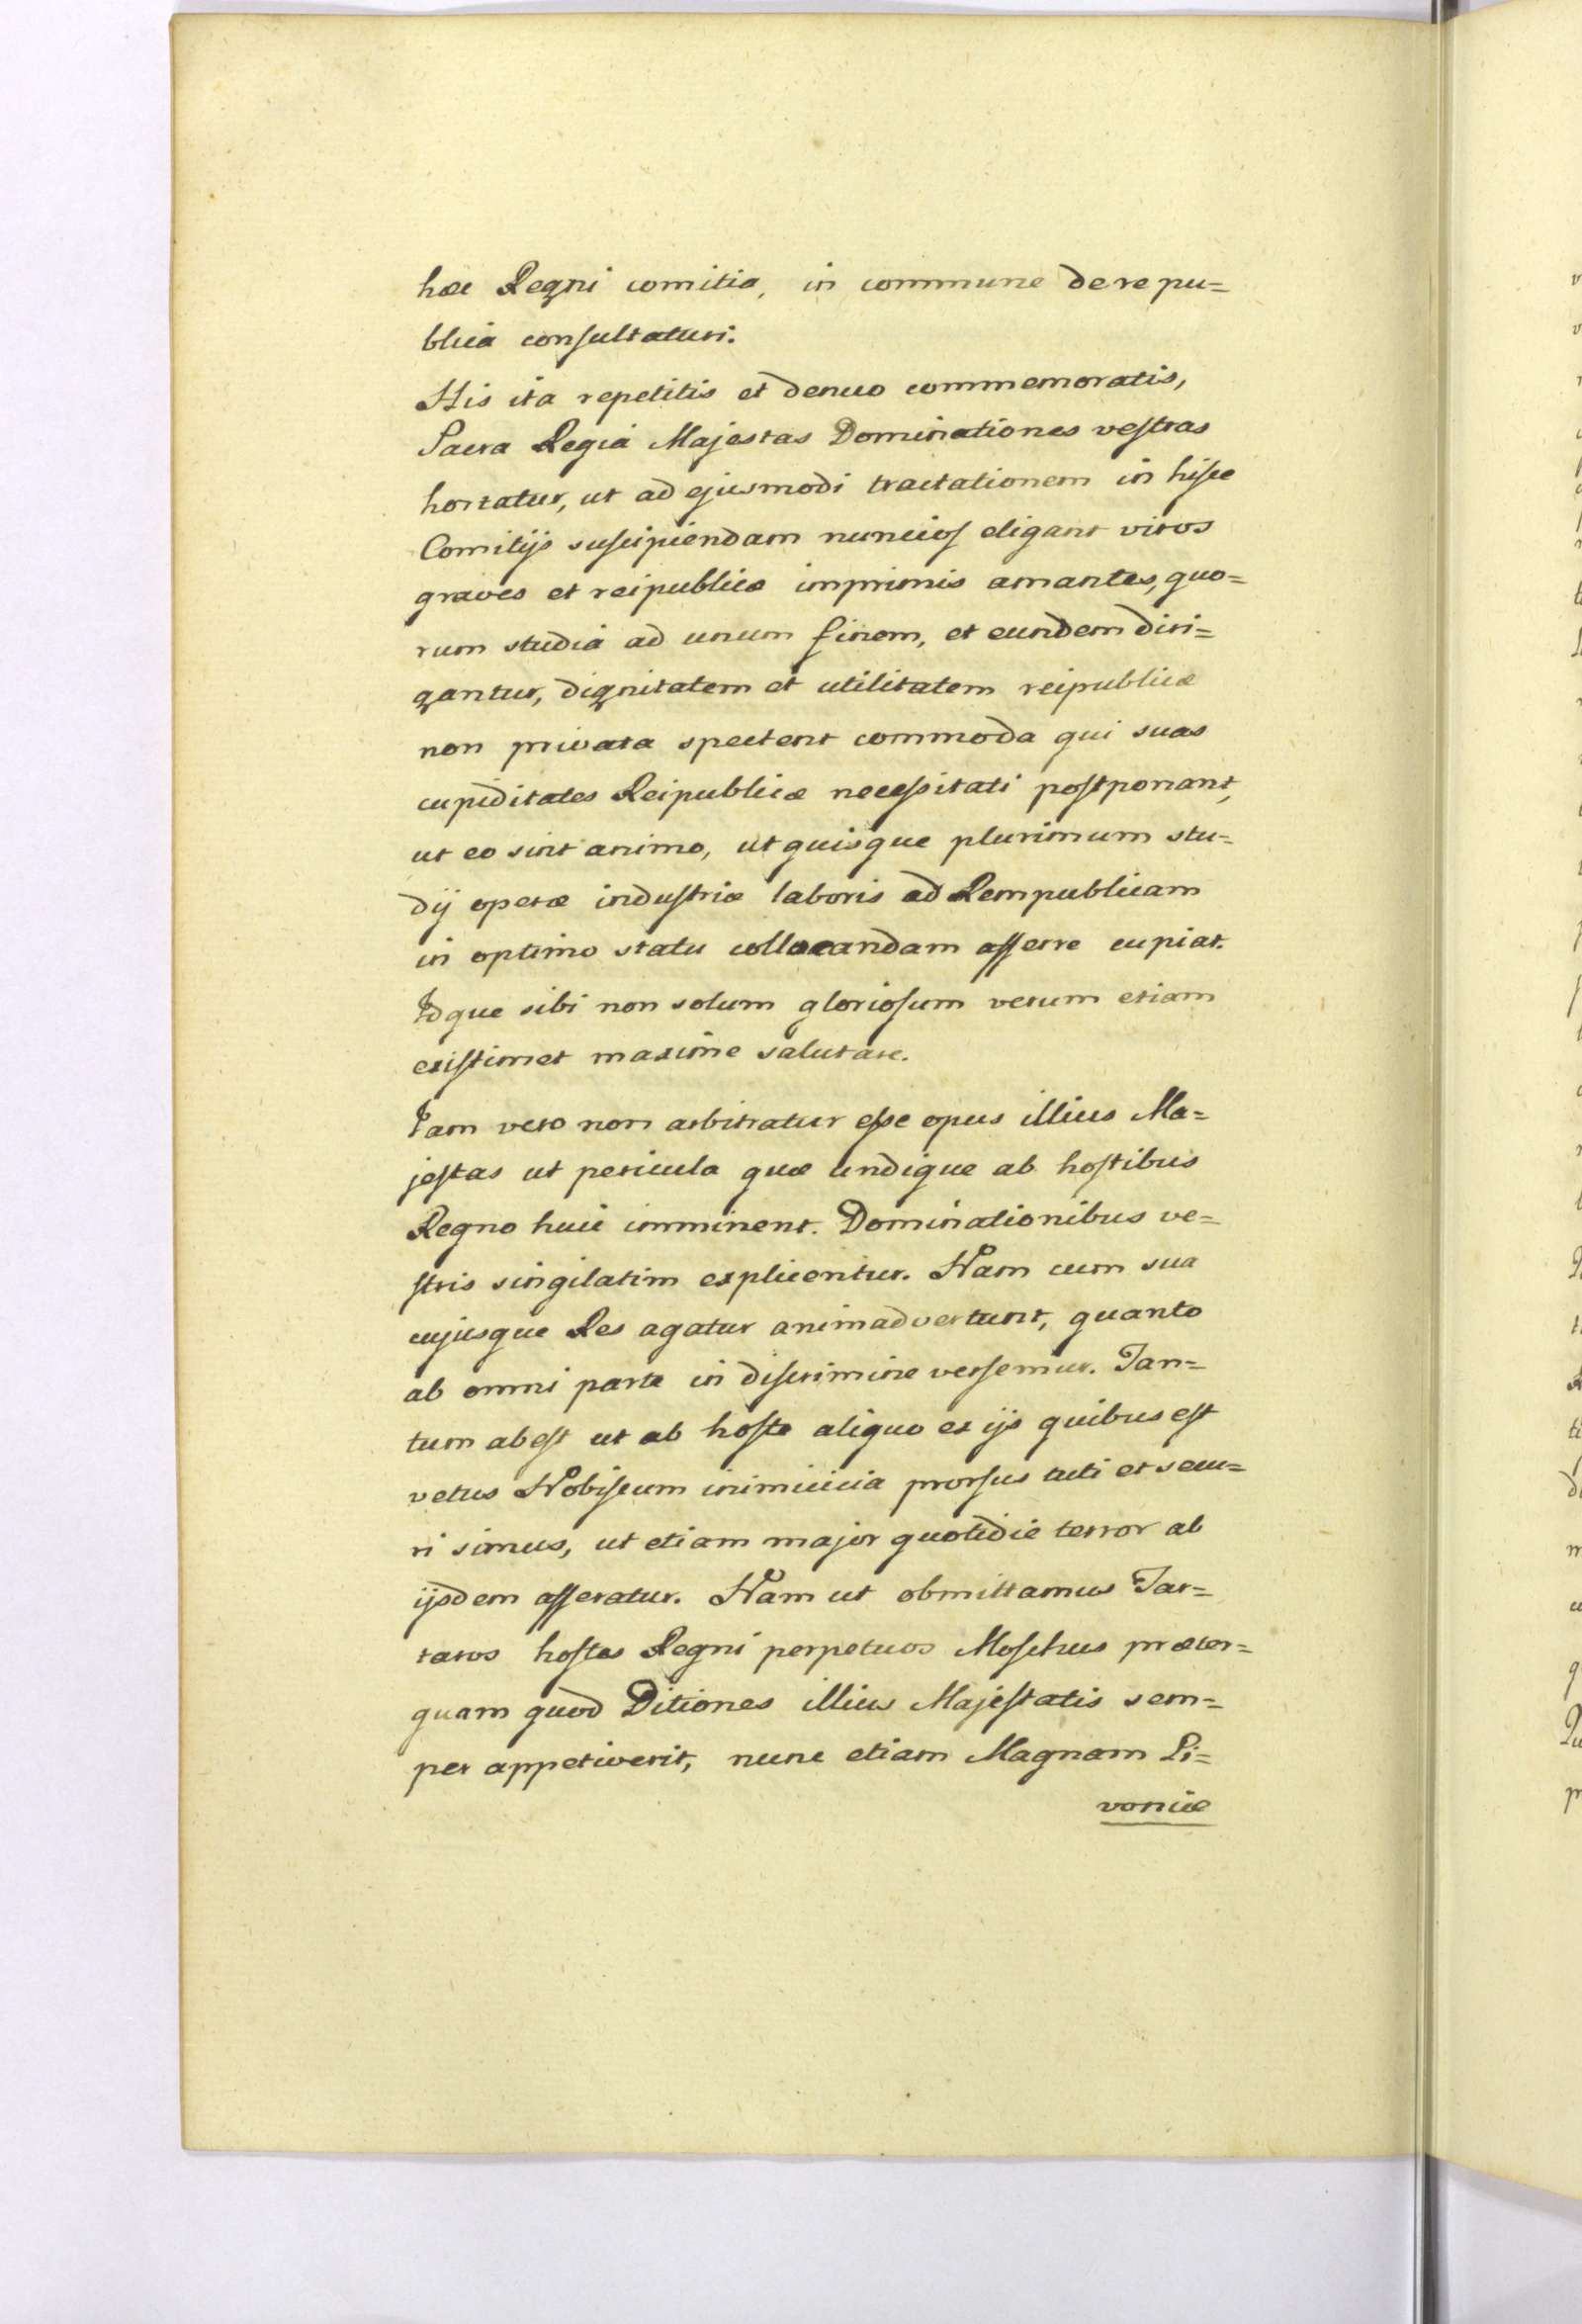 hæc Regni comitia, in commune de re pu=
blica consultaturi.
His ita repetitis et denuo commemoratis,
Sacra Regia Majestas Dominationes vestras
hortatur, ut ad ejusmodi tractationem in hisce
Comitijs suscipiendam nuncios eligant viros
graves et reipublicæ imprimis amantes, quo=
rum studia ad unum finem, et eundem diri=
gantur, dignitatem et utilitatem reipublicæ
non privata spectent commoda qui suas
cupiditates Reipublicæ necessitati postponant,
ut eo sint animo, ut quisque plurimum stu=
dij operæ industriæ laboris ad Rempublicam
in optimo statu collocandam afferre cupiat.
Idque sibi non solum gloriosum verum etiam
existimet maxime salutare.
Iam vero non arbitratur esse opus illius Ma=
jestas ut pericula quæ undique ab hostibus
Regno huic imminent. Dominationibus ve=
stris singilatim explicentur. Nam cum sua
cujusque Res agatur animadvertunt, quanto
ab omni parte in discrimine versemur. Tan=
tum abest ut ab hoste aliquo ex ijs quibus est
vetus Nobiscum inimicicia prorsus tuti et secu=
ri simus, ut etiam major quotidie terror ab
ijsdem afferatur. Nam ut obmittamus Tar=
taros hostes Regni perpetuos Moschus præter=
quam quod Ditiones illius Majestatis sem=
per appetiverit, nunc etiam Magnam Li=
voniæ